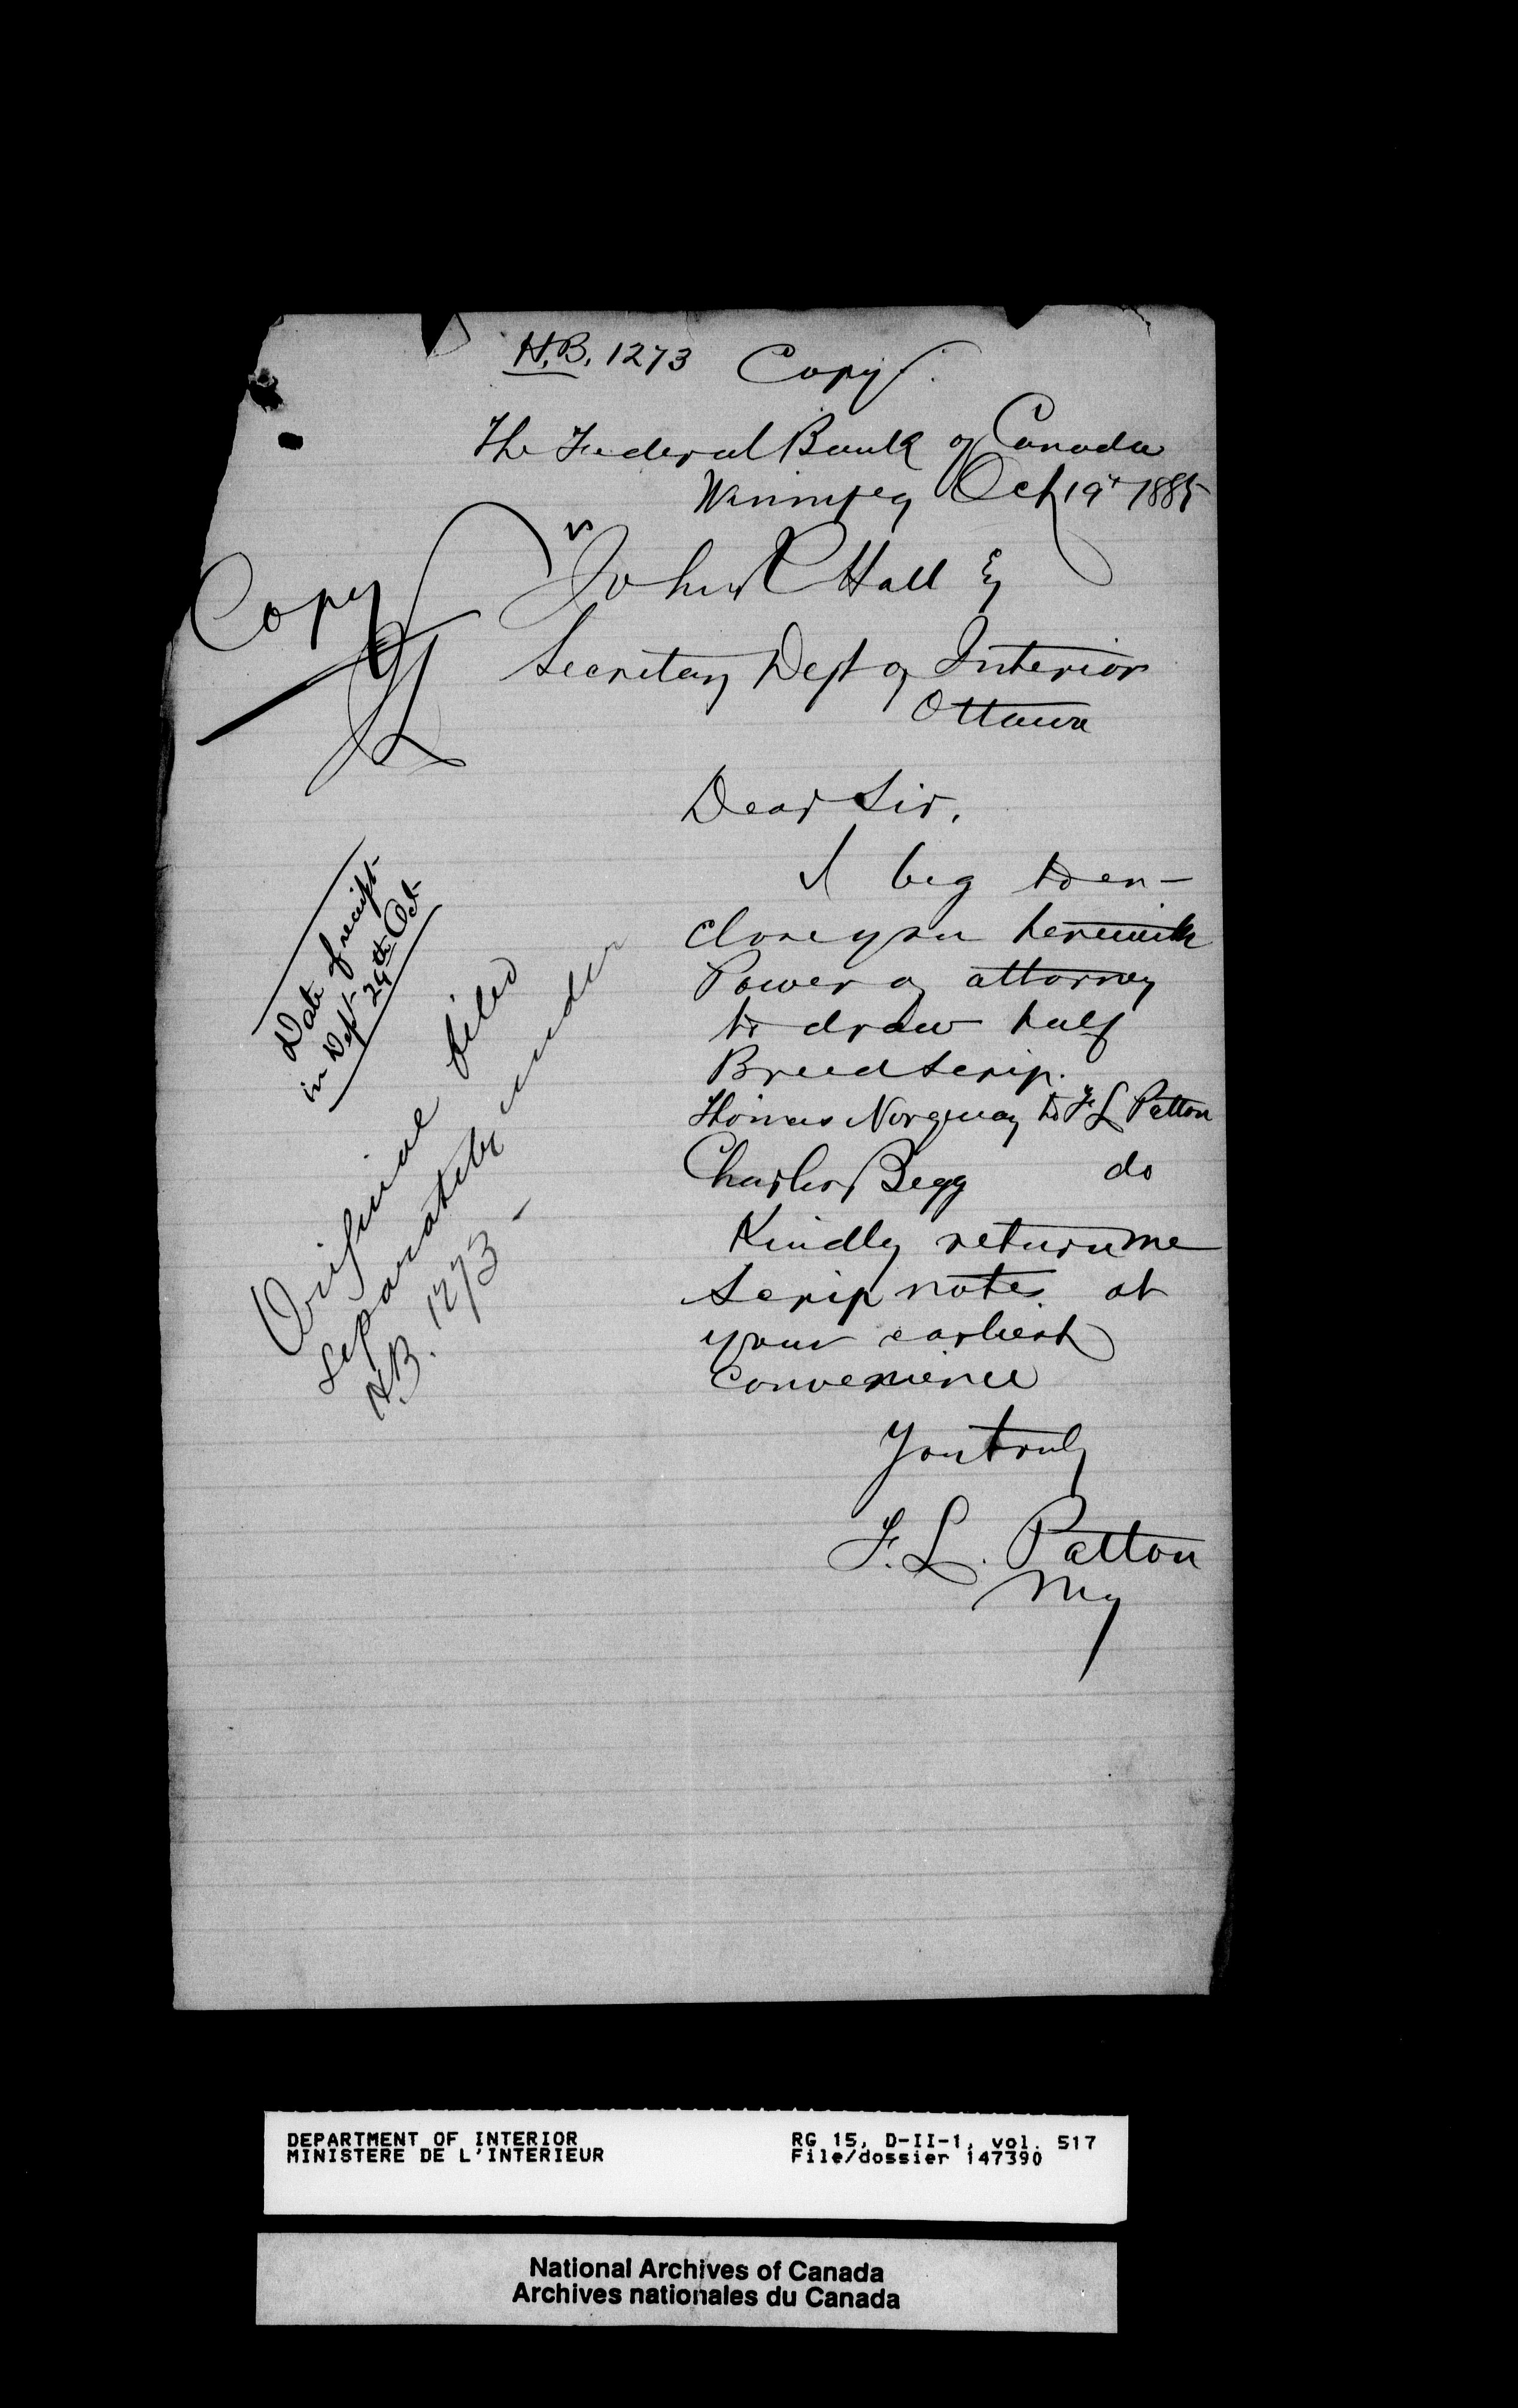 H.B. 1273 Copy.
The Federal Bank of Canada
Winnipeg Oct 19th 1885
Copy
John R Hall Esq
Secretary Dept of Interior
Ottawa
Dear Sir,
I beg to en-
close you herewith
Power of attorney
to draw half
Breed Scrip.
Thomas Norquay to F L Patton
Charles Begg do
Kindly return me
Scrip notes at
your earliest
convenience
Yours truly
F. L. Patton
Mg
Date of receipt
in Dept 24th Oct
Original filed
separately under
H.B. 1273 -
DEPARTMENT OF INTERIOR
MINISTERE DE L'INTERIEUR
RG 15, D-II-1, vol. 517
File/dossier 147390
National Archives of Canada
Archives nationales du Canada